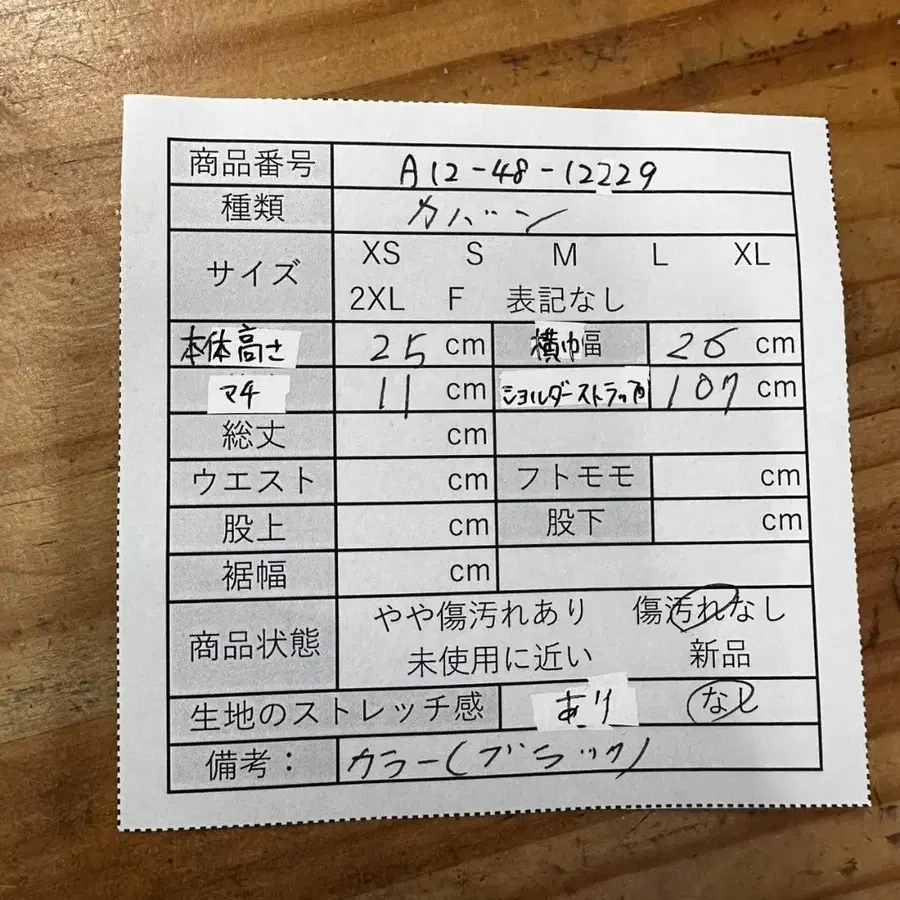 商品番号 A12-48-12229
種類 カバン
サイズ XS S M L XL
2XL F 表記なし
本体高さ 25 cm 横巾幅 26 cm
マチ 11 cm ショルダーストラップ 107 cm
総丈 cm
ウエスト cm フトモモ cm
股上 cm 股下 cm
裾幅 cm
商品状態 やや傷汚れあり 傷汚れなし
未使用に近い 新品
生地のストレッチ感 あり なし
備考： カラー(ブラック)